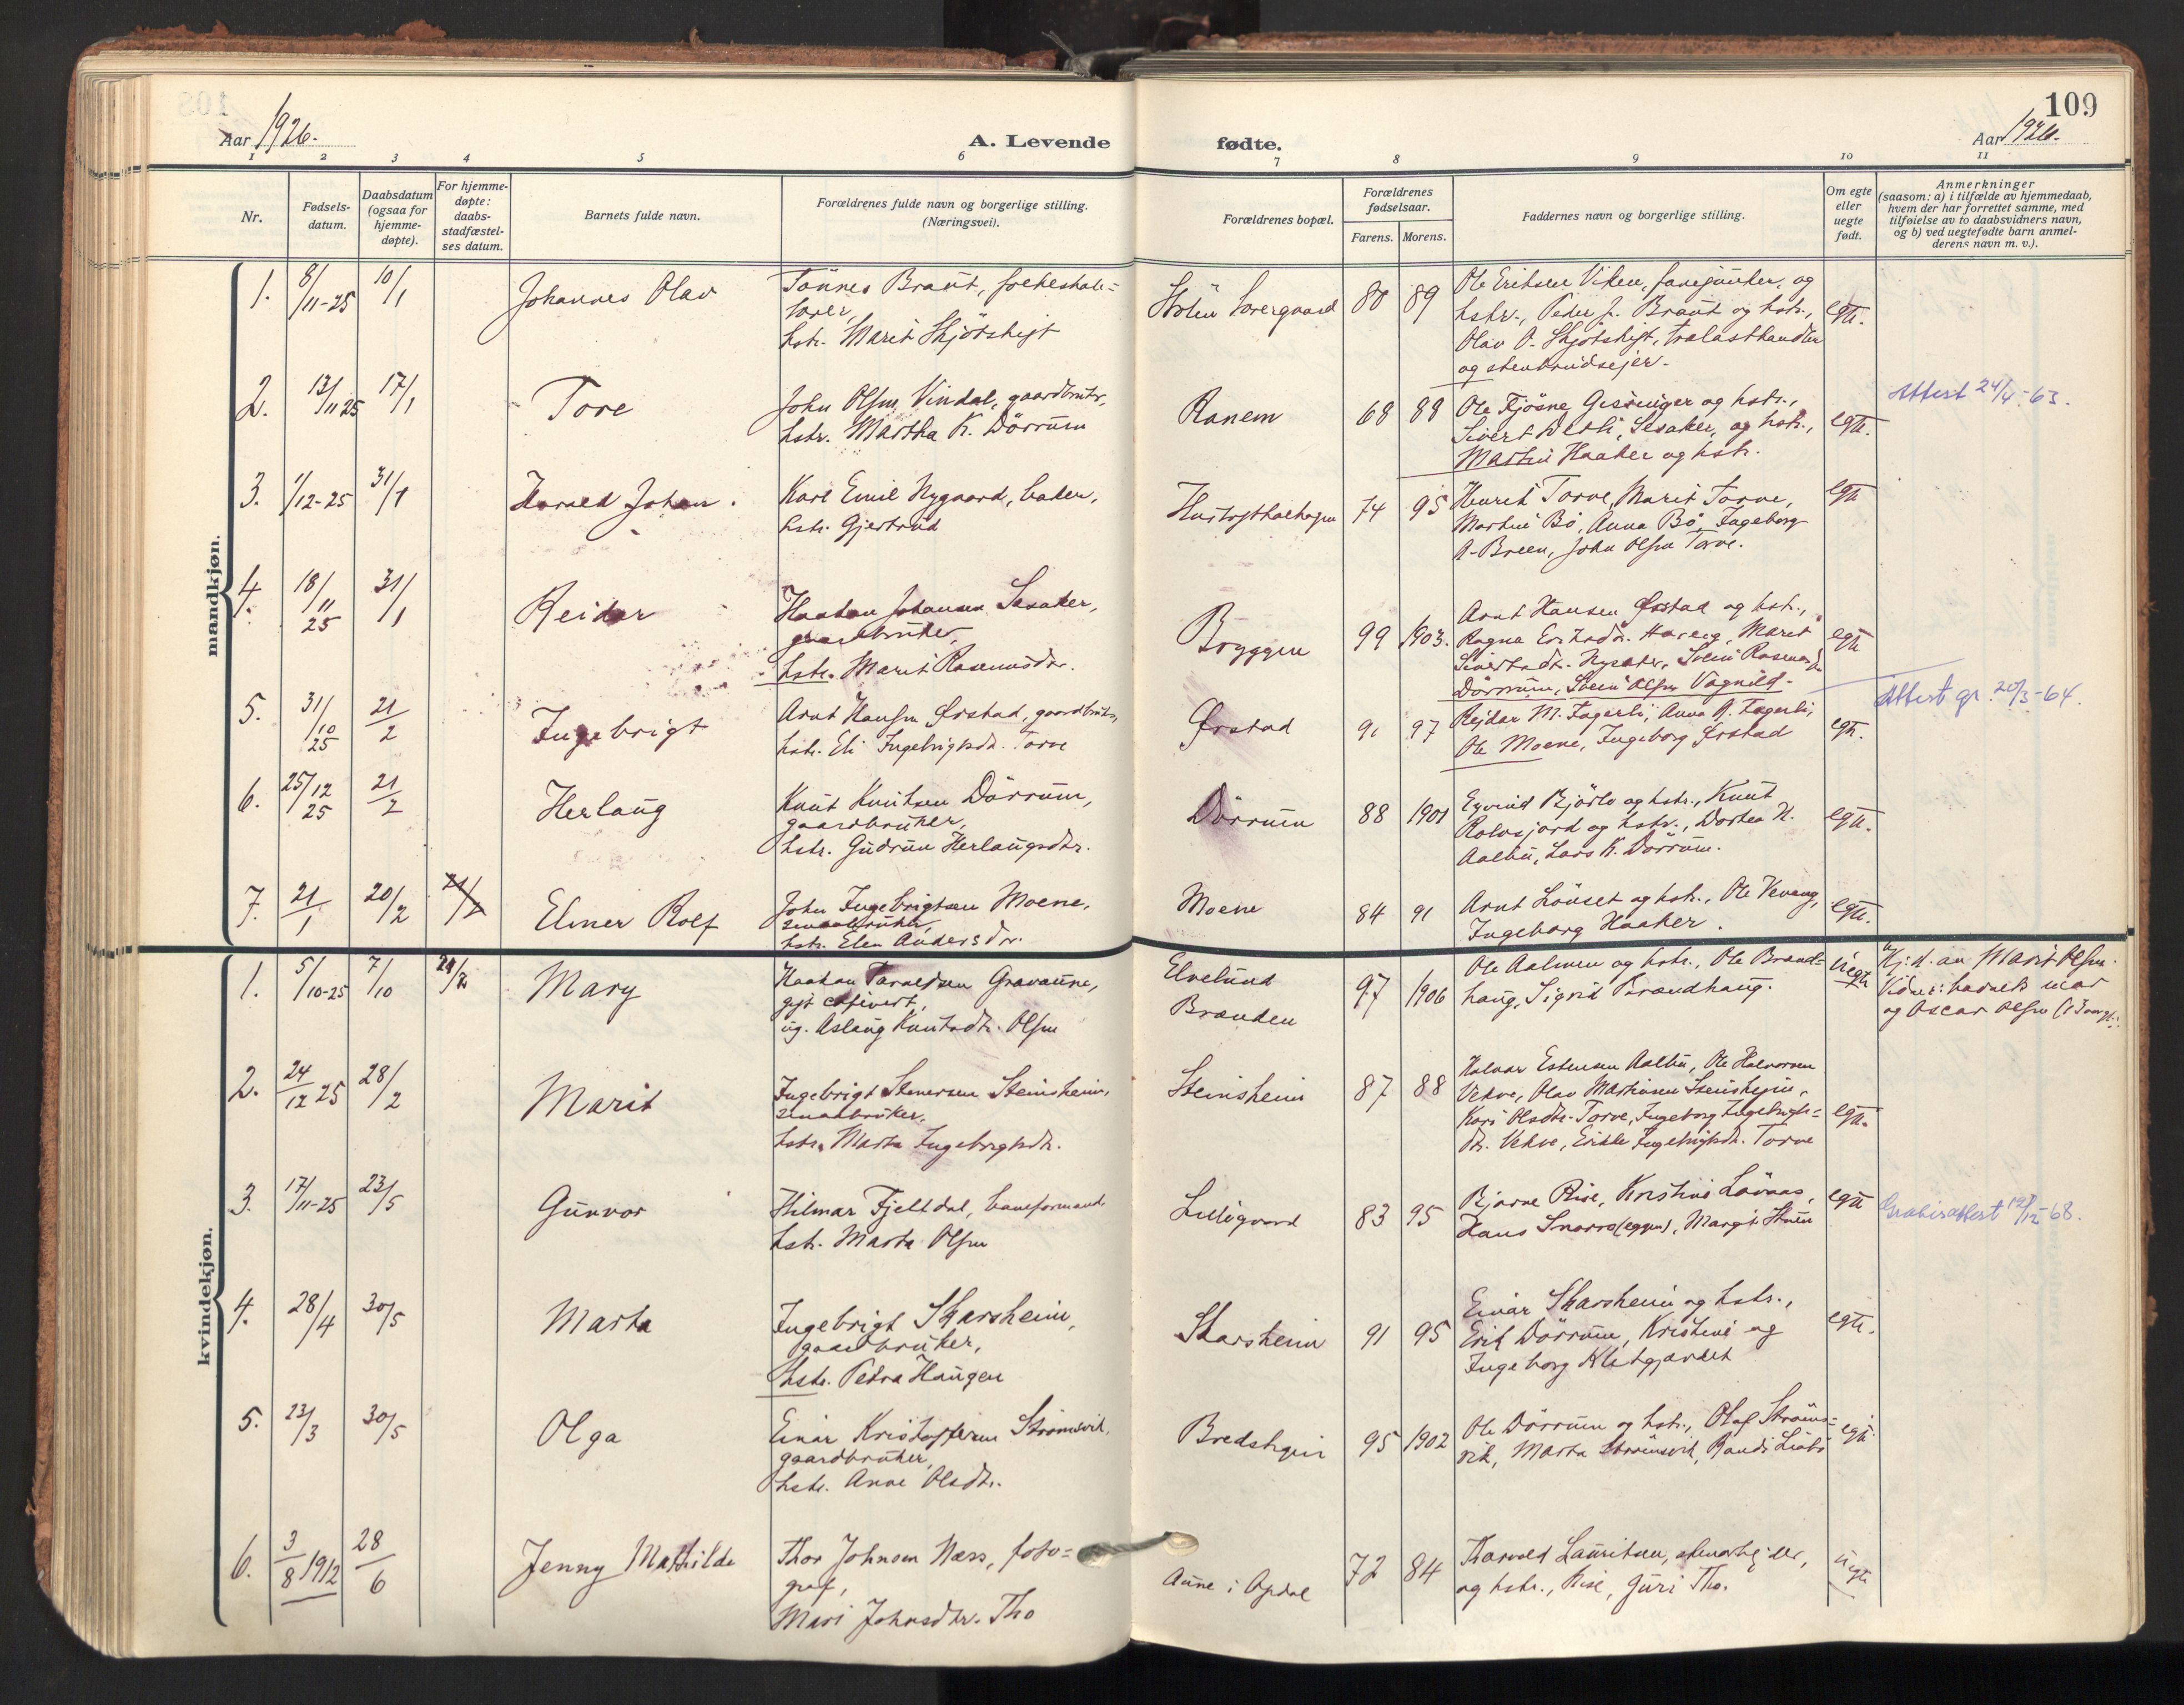 109
Aar 1926.
A. Levende
fødte.
Aar 1926.
1 2 3 4 5 6 7 8 9 10 11
Nr.
Fødsels-
datum.
Daabsdatum
(ogsaa for
hjemme-
døpte).
For hjemme-
døpte:
daabs-
stadfæstel-
ses datum.
Barnets fulde navn.
Forældrenes fulde navn og borgerlige stilling.
(Næringsvei).
Forældrenes bopæl.
Forældrenes
fødselsaar.
Farens. Morens.
Faddernes navn og borgerlige stilling.
Om egte
eller
uegte
født.
Anmerkninger
(saasom: a) i tilfælde av hjemmedaab,
hvem der har forrettet samme, med
tilføielse av to daabsvidners navn,
og b) ved uegtefødte barn anmel-
derens navn m. v.).
mandkjøn.
1. 8/11-25 10/1 Johannes Olav
Tönnes Braut,
hstr. Marit Skjötskift
80 89
Ole Eriksen Viken, fanejunker, og
hstr., Peder J. Braut og hstr.,
Olav O. Skjötskift, trælasthandler
og stenbrudsejer.
egte.
2. 13/11 25 17/1 Tore
John Olsen Vindal, gaardbruker,
hstr. Martha K. Dörrum
Ranem 68 88
Ole Fjösne Gisinger og hstr.,
Sivert Sesaker, og hstr.,
Martin Haaker og hstr.
egte.
Attest 24/4-63.
3. 1/12-25 31/1 Harald Johan.
Karl Emil Nygaard, baker,
hstr. Gjertrud
74 95
Marit Torve,
Bö, Anna Bö, Ingeborg
A. Breen, John Olsen Torve.
egte
4. 18/11 25 31/1 Reidar
Haakon Johansen Sesaker,
gaardbruker,
hstr. Marit Rasmusdtr.
Bryggen 99 1903.
Arnt Hansen Ørstad og hstr.,
Ragna Marit
Sivertsdtr.
Dörrum, Svein Olsen Vognild.
egte
5. 31/10 25 21/2 Ingebrigt
Arnt Hansen Ørstad, gaardbruker,
hstr. Eli Ingebrigtsdtr. Torve
Ørstad 91 97
Rejdar M. Fagerli, Anna A. Fagerli,
Ole Moene, Ingeborg Ørstad
egte.
Attest gr. 20/3-64.
6. 25/12 25 21/2 Herlaug
Knut Knutsen Dörrum,
gaardbruker,
hstr. Gudrun Herlaugsdtr.
Dörrum 88 1901
Eyvind og hstr., Knut
Rolvsjord og hstr., Dortea K.
Aalbu, Lars K. Dörrum.
egte.
7. 21/1 20/2 21/2 Elmer Rolf
John Ingebrigtsen Moene,
smaabruker,
hstr. Elen Andersdtr.
Moene 84 91
Arnt Lönset og hstr., Ole Vevang,
Ingeborg Haaker.
egte.
kvindekjøn.
1. 5/10-25 7/10 21/2 Mary
Haakon Gravaune,
ug. Aslaug Knutsdtr. Olsen
Elvelund
Brænden
97 1906
Ole Aalmen og hstr., Ole Brænd-
haug, Sigrid Brændhaug.
uegte
Hj. d. av Marit Olsen.
Vidner: barnets mor
og Oscar Olsen
2. 24/12 25 28/2 Marit
Ingebrigt Stenersen Steinsheim,
smaabruker,
hstr. Marta Ingebrigtsdtr.
Steinsheim 87 88
Halvar Estensen Aalbu, Ole Halvorsen
Vekve, Olav Martinsen Steinsheim,
Kari Olsdtr. Torve, Ingeborg Ingebrigts-
dtr. Vekve, Ingebrigtsdtr. Torve
egte.
3. 17/11-25 23/5 Gunvor
Hilmar Fjelldal, baneformand
hstr. Marta Olsen
83 95
Bjarne Rise, Kristine Lövaas,
Hans Snorro(eggen), Margit Stuen
egte
12/12-68.
4. 28/4 30/5 Marta
Ingebrigt Skarsheim,
gaardbruker,
hstr. Petra Haugen
Skarsheim 91 95
Einar Skarsheim og hstr.,
Erik Dörrum, Kristine og
Ingeborg Kletgjærdet
egte.
5. 23/3 30/5 Olga
Einar Kristoffersen Strömsvik,
gaardbruker,
hstr. Anne Olsdtr.
95 1902
Ole Dörrum og hstr., Olaf Ströms-
vik, Marta Strömsvik, Randi
egte
6. 3/8 1912 28/6 Jenny Mathilde
Thor Johnsen Næss, foto-
graf,
Mari Johnsdtr. Tho
Aune i Opdal 72 84
Thorvald Lauritsen,
og hstr., Rise, Guri Tho.
uegte